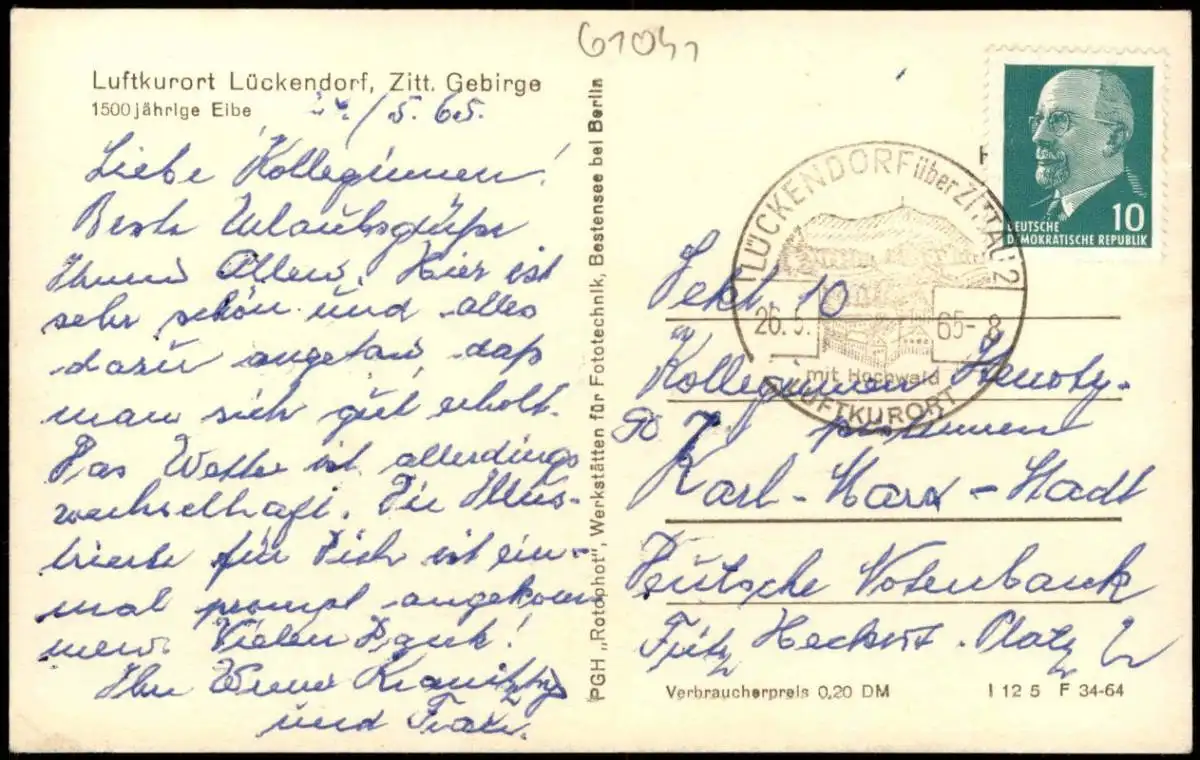 61041
Luftkurort Lückendorf, Zitt. Gebirge
1500jährige Eibe
/5.65.
Liebe Kolleginnen!
Beste Urlaubsgrüße
Ihnen Allen. Hier ist
sehr schön und alles
dazu angetan, daß
man sich gut erholt.
Das Wetter ist allerdings
wechselhaft. Die Illus-
trierte für Dich ist ein-
mal prompt angekom
men. Vielen Dank!
Ihr Werner
und Frau.
PGH „Rotophot", Werkstätten für Fototechnik, Bestensee bei Berlin
DEUTSCHE
DEMOKRATISCHE REPUBLIK
10
LÜCKENDORF über ZITTAU 2
26.5. 65-8
mit Hochwald
LUFTKURORT
Sekt. 10
Kolleginnen Stenoty-
90 pistinnen
Karl-Marx-Stadt
Deutsche Notenbank
Fritz Heckert-Platz 2
Verbraucherpreis 0,20 DM
I 12 5 F 34-64